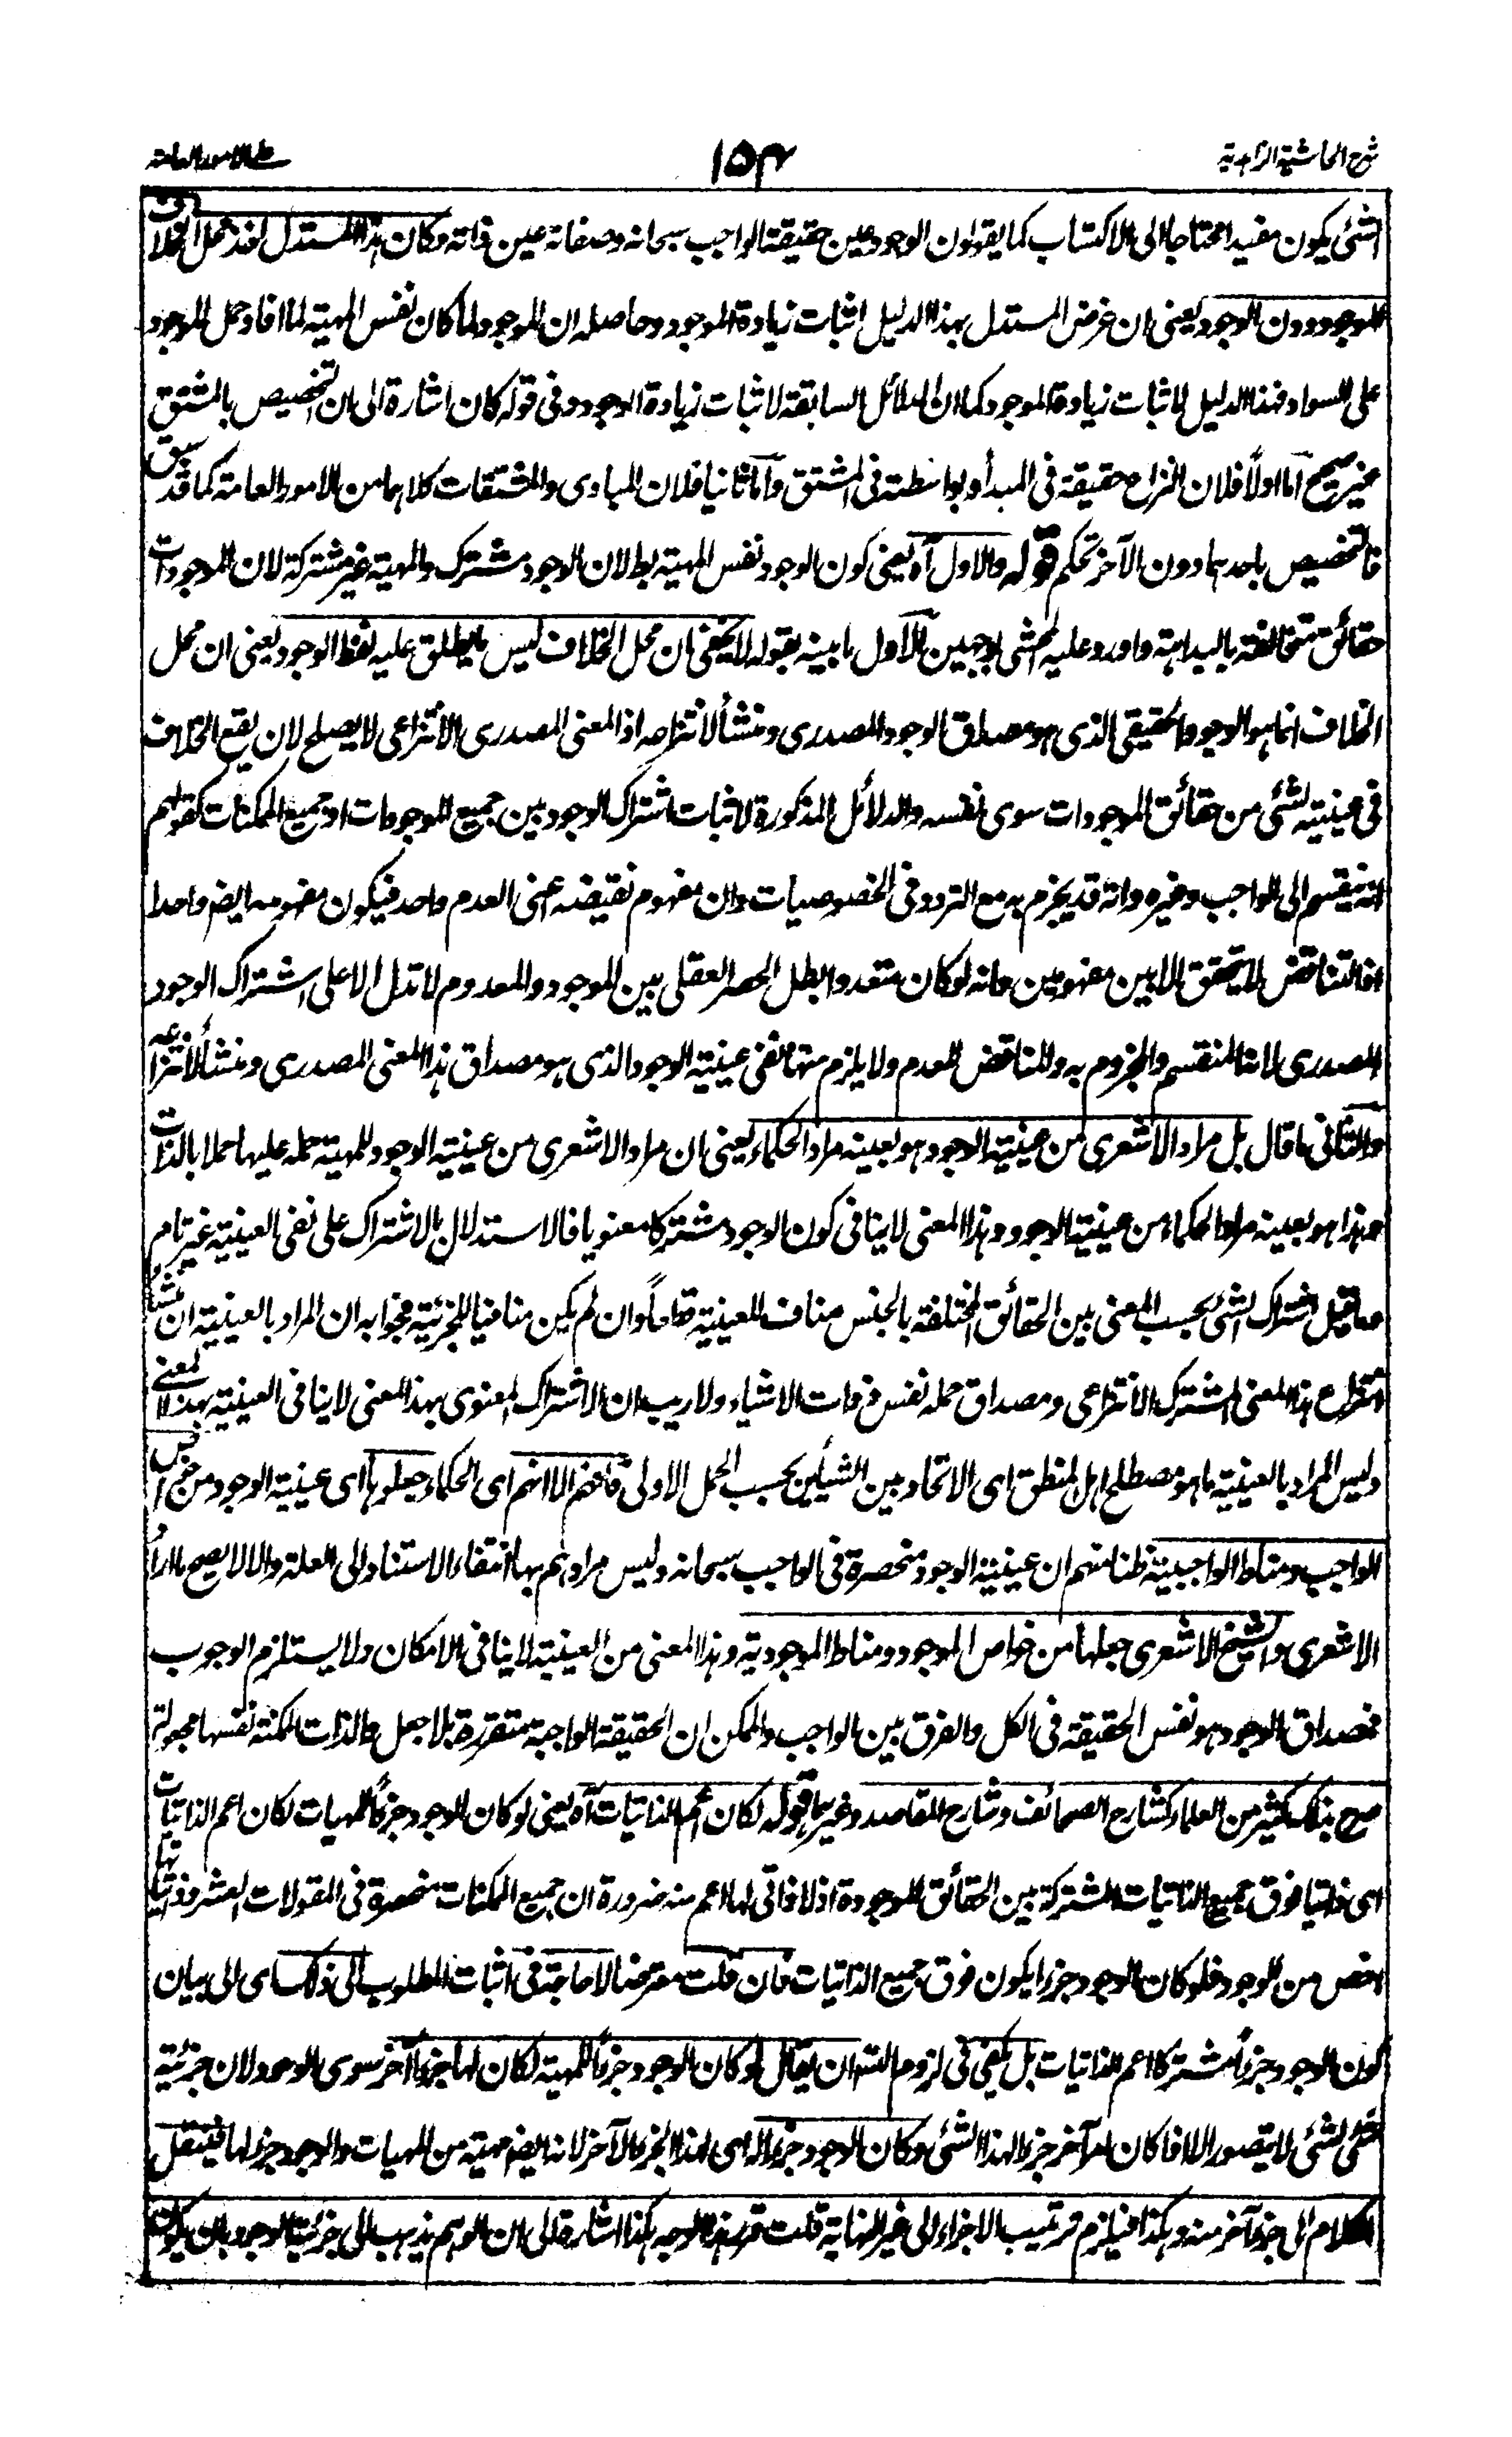 شرح الحاشية الزاهدية
١٥٣
على الامور العامة
الشئ يكون مفيدا محتاجا الى الاكتساب كما يقولون الوجود عين حقيقة الواجب سبحانه وصفاته عين ذاته وكان هذا المستدل اخذ محل الخلاف
الموجود دون الوجود يعنى ان غرض المستدل بهذا الدليل اثبات زيادة الموجود وحاصله ان الموجود لما كان نفس المهية لما افاد حمل الموجود
على السواد فهذا الدليل لاثبات زيادة الموجود كما ان الدلائل السابقة لاثبات زيادة الوجود وفى قوله كان اشارة الى ان التخصيص بالمشتق
غير صحيح اما اولاً فلان النزاع حقيقة فى المبدأ وبواسطته فى المشتق واما ثانيا فلان المبادى والمشتقات كلاهما من الامور العامة كما قد سبق
فالتخصيص باحدهما دون الآخر تحكم قوله والاول آه يعنى كون الوجود نفس المهية بط لان الوجود مشترك والمهية غير مشتركة لان الموجودات
حقائق متخالفة بالبداهة واورد عليه المحشى بوجهين الاول ما بينه بقوله لا يخفى ان محل الخلاف ليس ما يطلق عليه لفظ الوجود يعنى ان محل
الخلاف انما هو الوجود الحقيقى الذى هو مصداق الوجود المصدرى ومنشأ لانتزاعه اذ المعنى المصدرى الانتزاعى لا يصلح لان يقع الخلاف
فى عينيته لشئ من حقائق الموجودات سوى نفسه والدلائل المذكورة لاثبات اشتراك الوجود بين جميع الموجودات او جميع الممكنات كقولهم
انه ينقسم الى الواجب وغيره وانه قد يجزم به مع التردد فى الخصوصيات وان مفهوم نقيضه اعنى العدم واحد فيكون مفهومه ايضا واحدا
اذ التناقض لا يتحقق الا بين مفهومين وانه لو كان متعددا بطل الحصر العقلى بين الموجود والمعدوم لا تدل الا على اشتراك الوجود
المصدرى لانه المنقسم والمجزوم به والمناقض للعدم ولا يلزم منها نفى عينية الوجود الذى هو مصداق هذا المعنى المصدرى ومنشأ لانتزاعه
والثانى ما قال بل مراد الاشعرى من عينية الوجود هو بعينه مراد الحكماء يعنى ان مراد الاشعرى من عينية الوجود للمهية حمله عليها حملا بالذات
وهذا هو بعينه مراد الحكماء من عينية الوجود وهذا المعنى لا ينافى كون الوجود مشتركا معنويا فالاستدلال بالاشتراك على نفى العينية غير تام
وما قيل اشتراك الشئ بحسب المعنى بين الحقائق المختلفة بالجنس مناف للعينية قطعاً وان لم يكن منافيا للجزئية فجوابه ان المراد بالعينية ان منشأ
انتزاع هذا المعنى المشترك الانتزاعى ومصداق حمله نفس ذوات الاشياء ولا ريب ان الاشتراك المعنوى بهذا المعنى لا ينافى العينية بهذا المعنى
وليس المراد بالعينية ما هو مصطلح اهل المنطق اى الاتحاد بين الشيئين بحسب الحمل الاولى فافهم الا انهم اى الحكماء جعلوها اى عينية الوجود من خواص
الواجب ومناط الواجبية ظنا منهم ان عينية الوجود منحصرة فى الواجب سبحانه وليس مرادهم بها انتفاء الاستناد الى العلة والا لا يصح ما اراد
الاشعرى والشيخ الاشعرى جعلها من خواص الموجود ومناط الموجودية وهذا المعنى من العينية لا ينافى الامكان ولا يستلزم الوجوب
فمصداق الوجود هو نفس الحقيقة فى الكل والفرق بين الواجب والممكن ان الحقيقة الواجبة متقررة بلا جعل والذات الممكنة نفسها مجعولة
صرح بذلك كثير من العلماء كشارح الصحائف وشارح المقاصد وغيرهما قوله لكان اعم الذاتيات آه يعنى لو كان الوجود جزءً للمهيات لكان اعم الذاتيات
اى ذاتيا فوق جميع الذاتيات المشتركة بين الحقائق الموجودة اذ لا ذاتى لها اعم منه ضرورة ان جميع الممكنات منحصرة فى المقولات العشر وذاتياتها
اخص من الوجود فلو كان الوجود جزءا يكون فوق جميع الذاتيات فان قلت معترضا لا حاجة فى اثبات المطلوب الى ذلك اى الى بيان
كون الوجود جزءً مشتركا اعم الذاتيات بل يكفى فى لزوم التسـ ان يقال لو كان الوجود جزءً للمهية لكان لها جزءً آخر سوى الوجود لان جزئية
شئ لشئ لا يتصور الا اذا كان امر آخر جزءا لهذا الشئ وكان الوجود جزءا له اى لهذا الجزء الآخر لانه ايضا مهية من المهيات والوجود جزء لها فينتقل
الكلام الى جزء آخر منه وهكذا فيلزم ترتيب الاجزاء الى غير النهاية قلت قرر هذا الوجه هكذا اشارة الى ان الوهم يذهب الى جزئية الوجود بان يكون